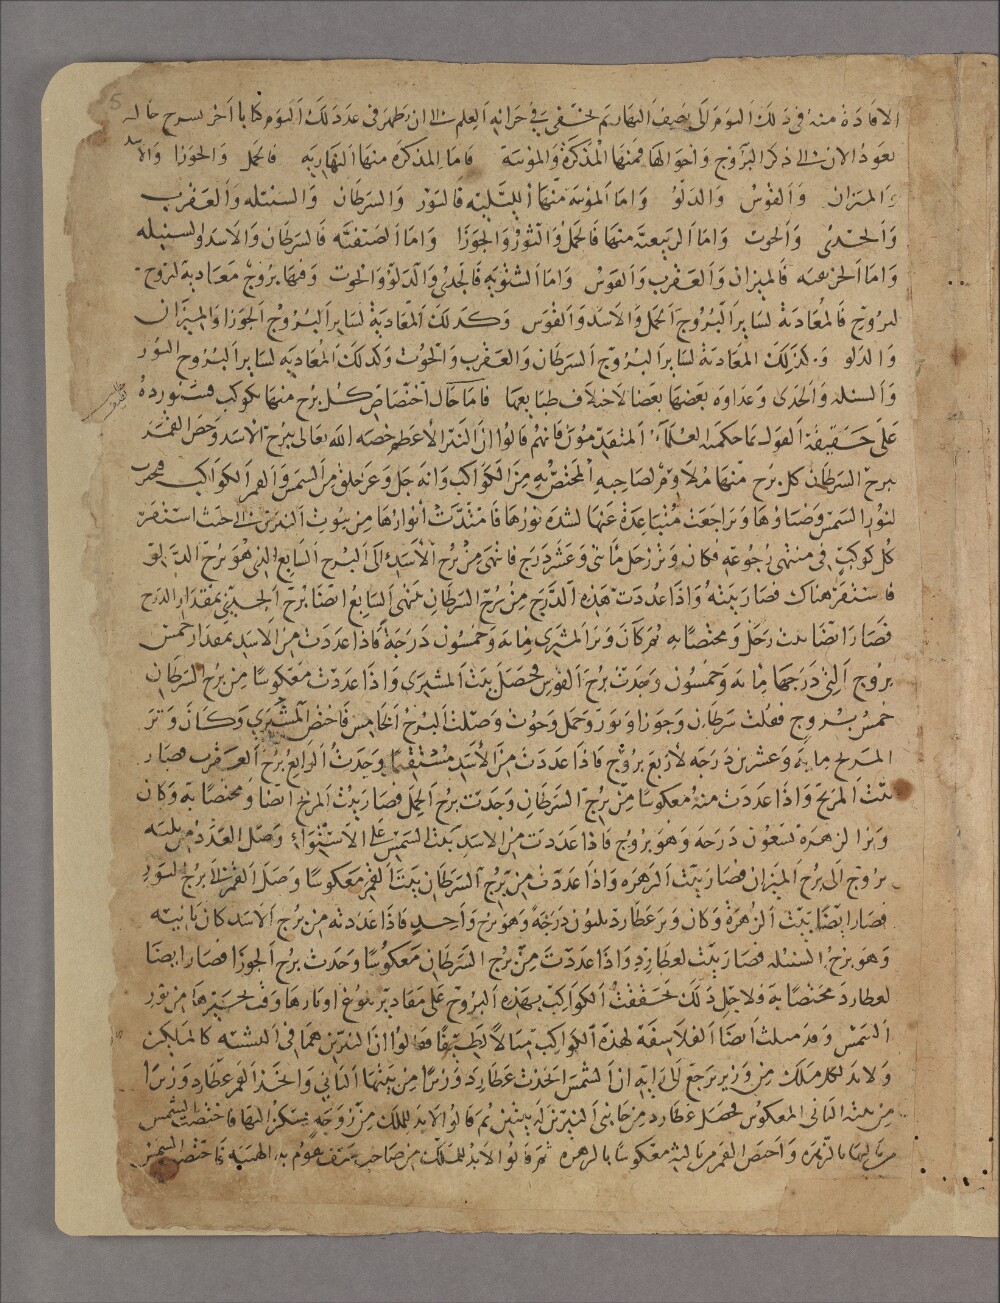 5
الافادة منه في ذلك اليوم الى نصف النهار ثم يختفي في خزانة العلم الى ان يظهر في عدد ذلك اليوم كتابا آخر نسرح حاله
نعود الان الى ذكر البروج واحوالها فمنها المذكرة والمؤنثة فاما المذكرة منها النهارية فالحمل والجوزا والاسد
والميزان والقوس والدلو واما المؤنثة منها الليلية فالثور والسرطان والسنبلة والعقرب
والجدى والحوت واما الربيعية منها فالحمل والثور والجوزا واما الصيفية فالسرطان والاسد والسنبلة
واما الخريفية فالميزان والعقرب والقوس واما الشتوية فالجدى والدلو والحوت وفيها بروج معادية لبروج
لبروج فالمعادية لساير البروج الحمل والاسد والقوس وكذلك المعادية لساير البروج الجوزا والميزان
والدلو وكذلك المعادية لساير البروج السرطان والعقرب والحوت وكذلك المعادية لساير البروج الثور
والسنبلة والجدى وعداوة بعضها بعضا لاختلاف طبايعها فاما حال اختصاص كل برج منها بكوكب فسنورده
على حقيقة القول بما حكمه العلماء المتقدمون فانهم قالوا ان النير الاعظم خصه الله تعالى ببرج الاسد وخص القمر
ببرج السرطان كل برج منها ملاوم لصاحبه المختص به من الكواكب وانه جل وعز خلق من الشمس والقمر الكواكب فتحير
لنور الشمس وضياوها وتراجعت متباعدة عنها لشدة نورها فامتدت انوارها من بيوت النيرين الى حيث استقر
كل كوكب في منتهى رجوعه فكان وتر زحل مأتى وعشر درج فانتهى من برج الاسد الى البرج السابع الذي هو برج الدلو
فاستقر هناك فصار بيته واذا عددت هذه الدرج من برج السرطان ينتهى السابع ايضا برج الجدي بمقدار الدرج
فصار ايضا بيت زحل ومختصا به ثم كان وتر المشترى ماية وخمسون درجة فاذا عددت من الاسد بمقدار خمس
بروج التي درجها ماية وخمسون وجدت برج القوس فحصل بيت المشترى واذا عددت معكوسا من برج السرطان
خمس بروج فقلت سرطان وجوزا وثور وحمل وحوت وصلت البرج الخامس فاختص المشتري وكان وتر
المريخ ماية وعشرين درجة لاربع بروج فاذا عددت من الاسد مستقيما وجدت الرابع برج العقرب فصار
بيت المريخ واذا عددت منه معكوسا من برج السرطان وجدت برج الحمل فصار بيت المريخ ايضا ومختصا به وكان
وتر الزهرة تسعون درجة وهو بروج فاذا عددت من الاسد بيت الشمس على الاستواء وصل العدد من ثلثة
بروج الى برج الميزان فصار بيت الزهرة واذا عددت من برج السرطان بيت القمر معكوسا وصل القمر الى برج الثور
فصار ايضا بيت الزهرة وكان وتر عطارد ثلثون درجة وهو برج واحد فاذا عددته من برج الاسد كان ثانيه
وهو برج السنبلة فصار بيت لعطارد واذا عددت من برج السرطان معكوسا وجدت برج الجوزا فصار ايضا
لعطارد مختصا به فلاجل ذلك تحققت الكواكب بهذه البروج على مقادير بلوغ اوتارها وقت تحيرها من نور
الشمس وقد مثلت ايضا الفلاسفة لهذه الكواكب مثالا لطيفا فقالوا ان النيرين هما في النسبة كالملكين
ولابد لكل ملك من وزير يرجع الى رايه ان الشمس اتخذت عطارد وزيرا من بيتها الثاني واتخذ القمر عطارد وزيرا
من بيته الثاني المعكوس فحصل عطارد من جانبي النيرين له بيتين ثم قالوا لابد للملك من زوجة يسكن اليها فاختصت الشمس
من ثالثها بالزهرة واختص القمر من ثالثه معكوسا بالزهره ثم قالوا لابد للملك من صاحب سيف يقوم به الهيبة فاختص الشمس